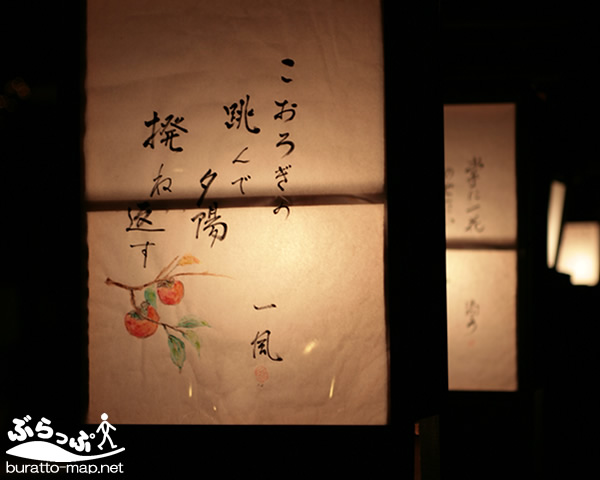 こおろぎの
跳んで
夕陽
撥ね返す
一風
ぶらっぷ
buratto-map.net